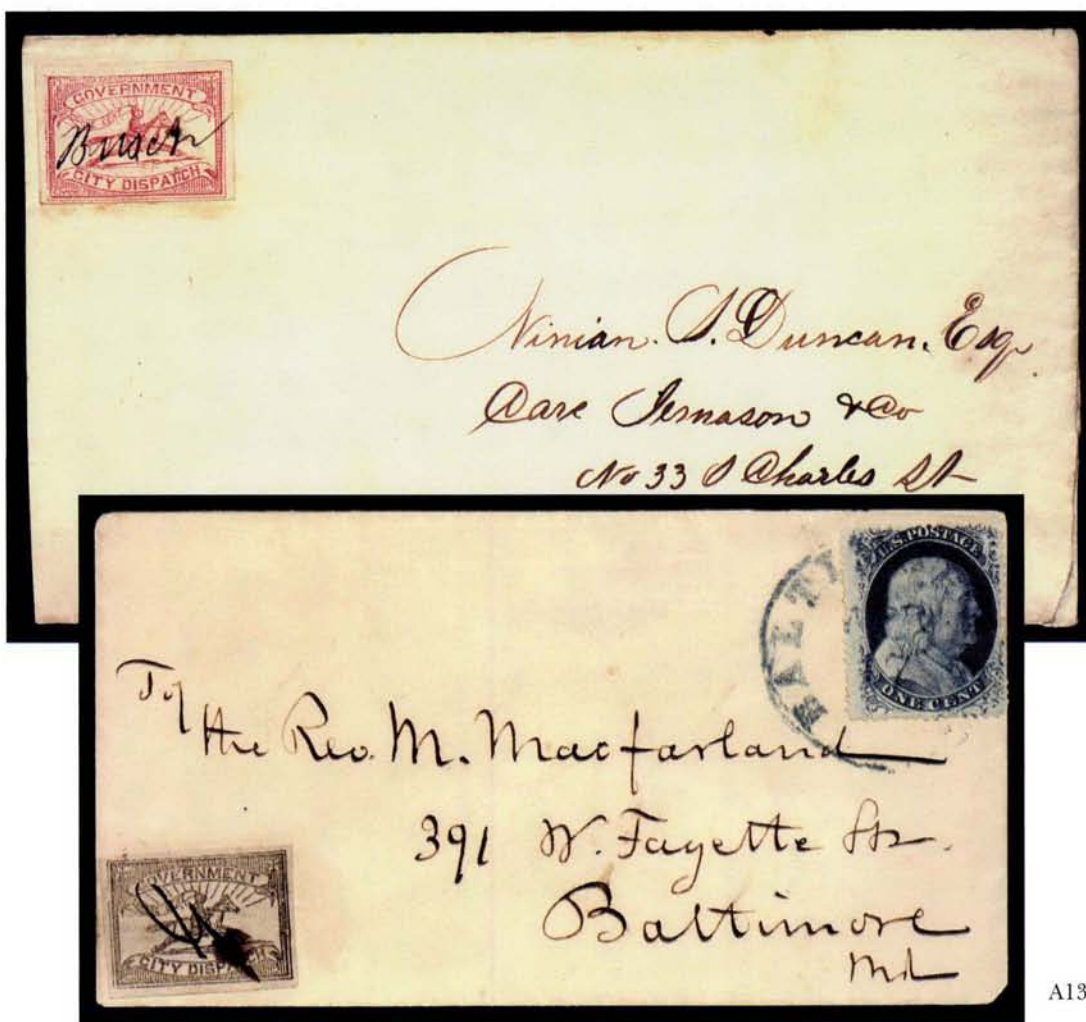 GOVERNMENT
ONE CENT
Busch
CITY DISPATCH
Ninian. S. Duncan. Esq
Care Jernason & Co
No 33 S Charles St
U.S. POSTAGE
ONE CENT
BALTI
To/
the Rev. M. Macfarland
391 W. Fayette St.
Baltimore
Md
GOVERNMENT
CITY DISPATCH
A13